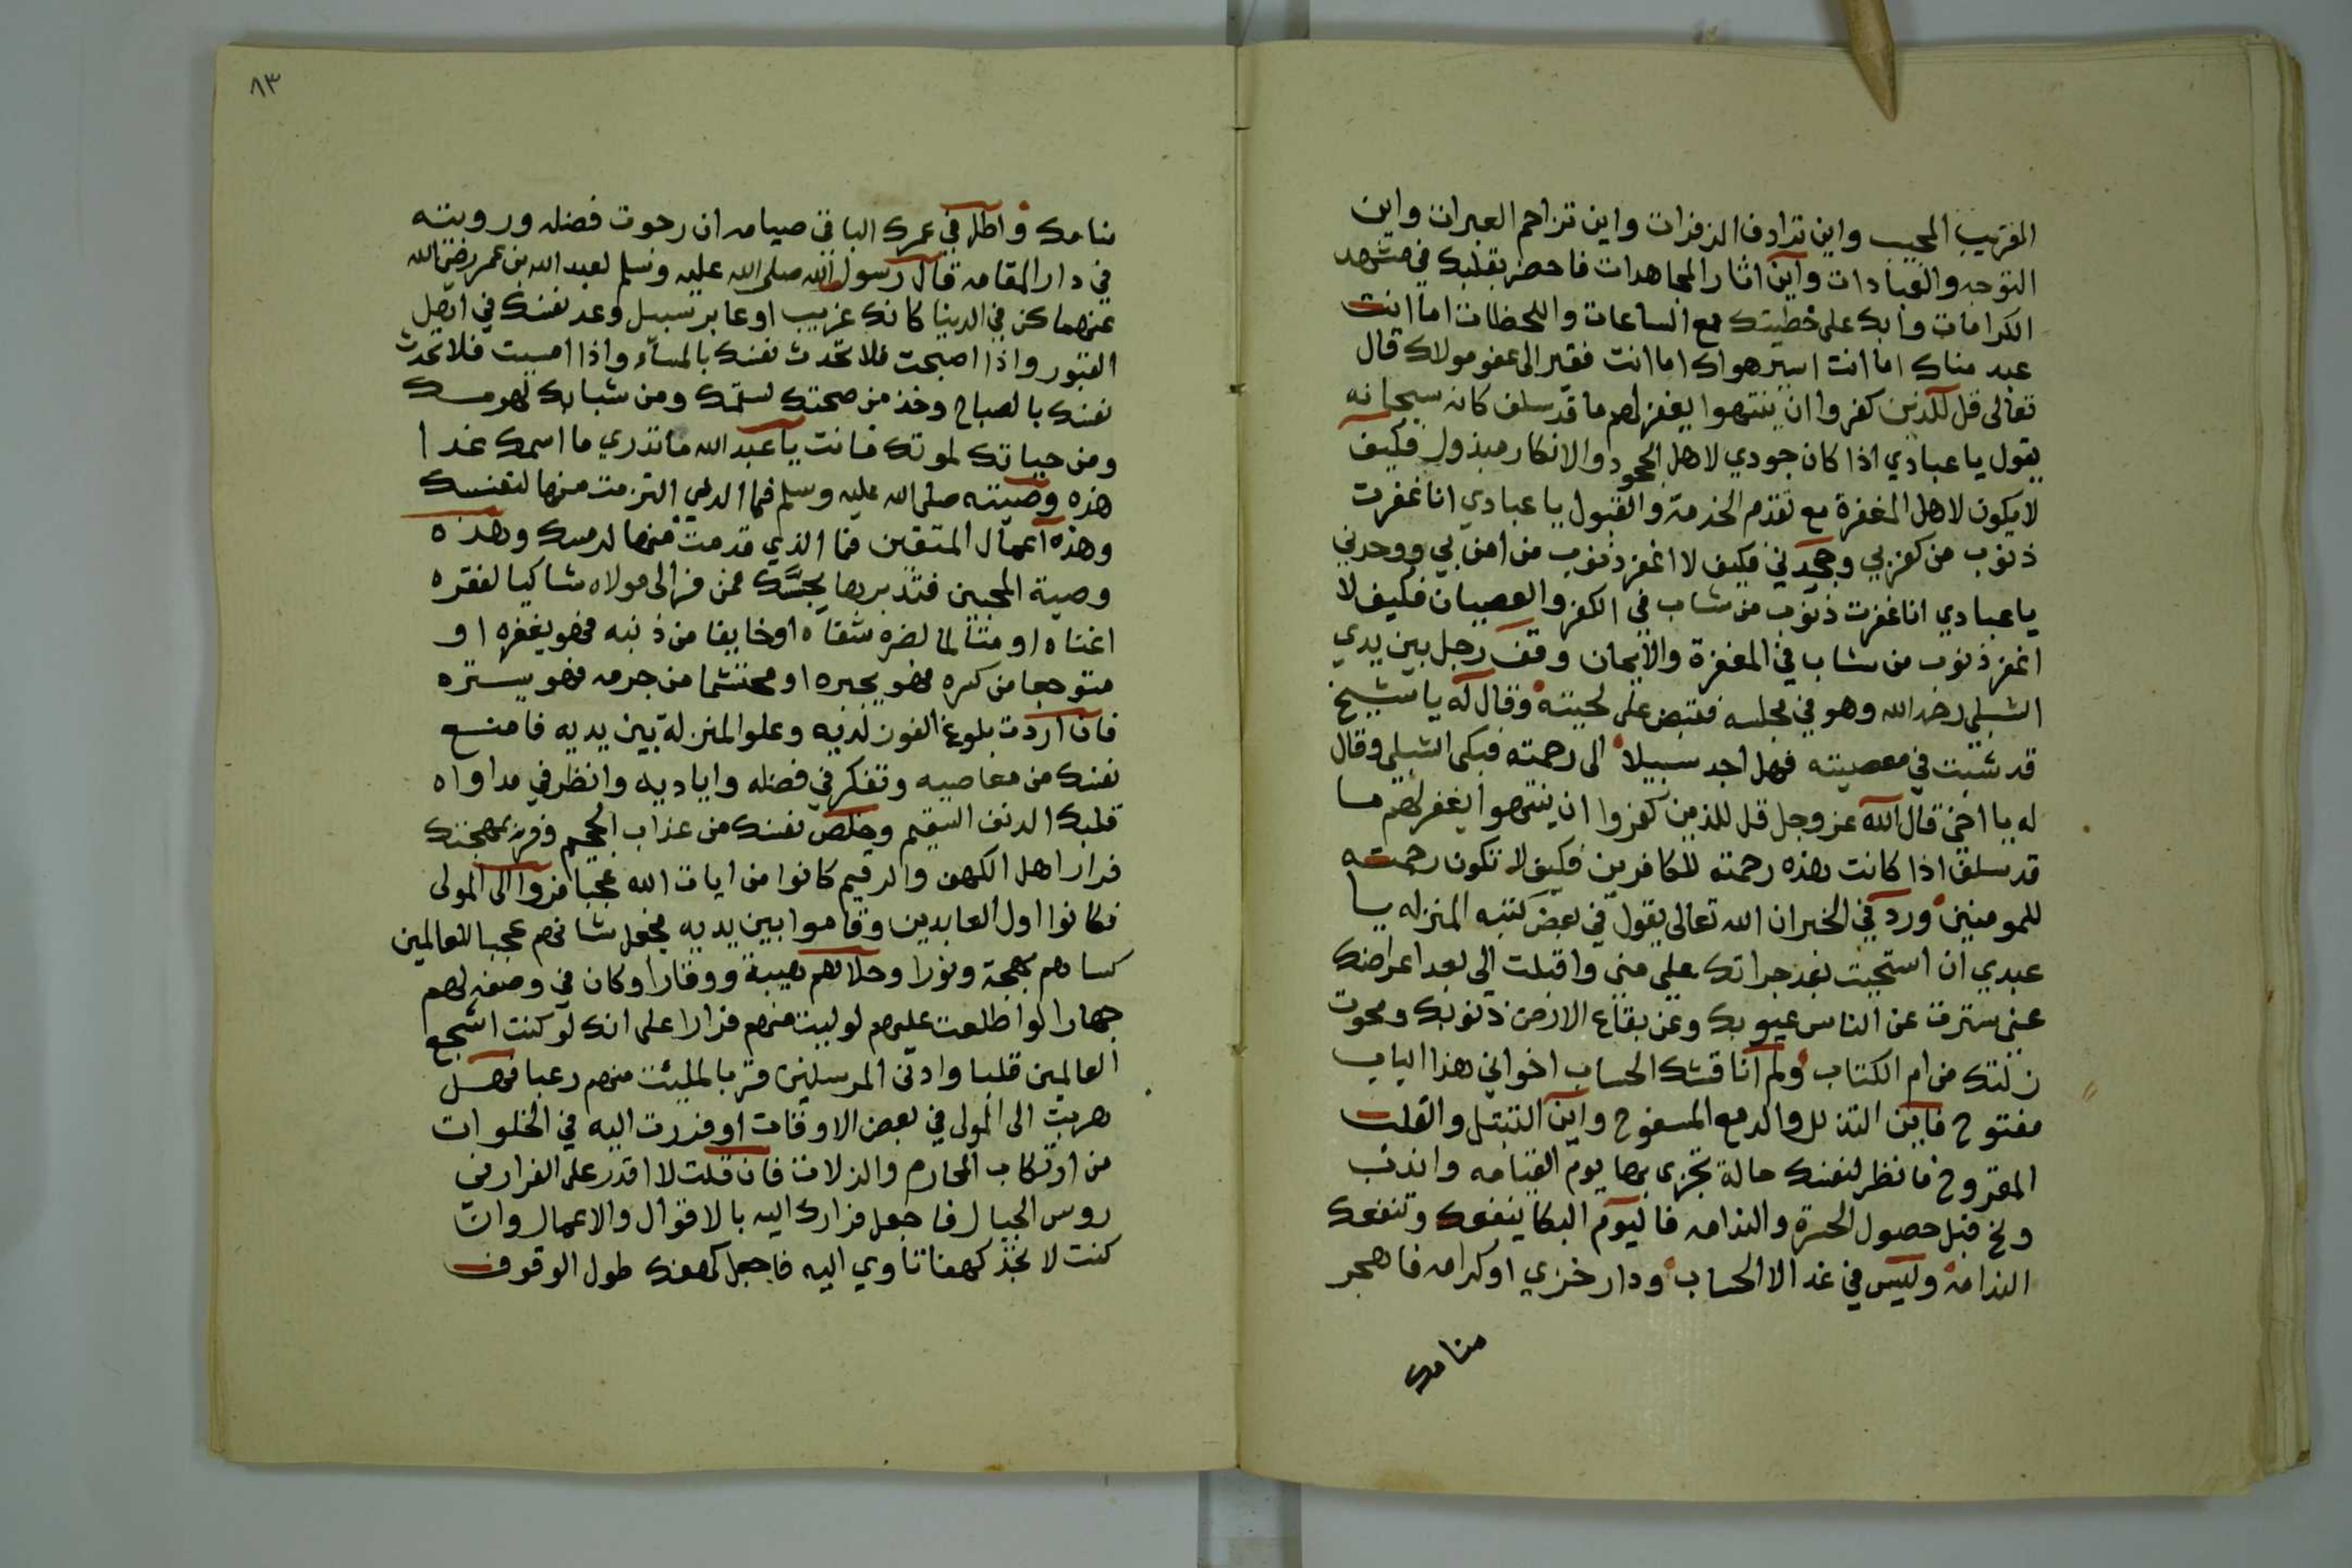 القريب المجيب واين ترادف الزفرات واين تزاحم العبرات واين
التوجه والعبادات واين اثار المجاهدات فاحضر بقلبك في مشهد
الكرامات وابك على خطيتك مع الساعات واللحظات اما انت
عبد مناك اما انت اسير هواك اما انت فقير الى عفو مولاك قال
تعالى قل للذين كفروا ان ينتهوا يغفر لهم ما قد سلف كانه سبحانه
يقول يا عبادي اذا كان جودي لاهل الجحود والانكار مبذول فكيف
لا يكون لاهل المغفرة مع تقدم الخدمة والقبول يا عبادي انا غفرت
ذنوب من كفر بي وجحدني فكيف لا اغفر ذنوب من امن بي ووحدني
يا عبادي انا غفرت ذنوب من شاب في الكفر والعصيان فكيف لا
اغفر ذنوب من شاب في المغفرة والايمان وقف رجل بين يدي
الشبلي رحمه الله وهو في مجلسه فقبض على لحيته وقال له يا شيخ
قد شبت في معصيته فهل اجد سبيلا الى رحمته فبكى الشبلي وقال
له يا اخي قال الله عز وجل قل للذين كفروا ان ينتهوا يغفر لهم ما
قد سلف اذا كانت هذه رحمته للكافرين فكيف لا تكون رحمته
للمومنين ورد في الخبر ان الله تعالى يقول في بعض كتبه المنزله يا
عبدي ان استحيت بعد جراتك علي مني واقبلت الي بعد اعراضك
عني سترت عن الناس عيوبك وعن بقاع الارض ذنوبك ومحوت
زلتك من ام الكتاب ولم اناقشك الحساب اخواني هذا الباب
مفتوح فاين التذلل والدمع المسفوح واين التبتل والقلب
المقروح فانظر لنفسك حالة تجزى بها يوم القيامه واندب
ونح قبل حصول الحسرة والندامه فاليوم البكا ينفعك وتنفعك
الندامه وليس في غد الا الحساب ودار خزي او كرامه فاهجر
منامك
٨٣
منامك واطل في عمرك الباقي صيامه ان رجوت فضله ورويته
في دار المقامه قال رسول الله صلى الله عليه وسلم لعبد الله بن عمر رضي الله
عنهما كن في الدنيا كانك غريب او عابر سبيل وعد نفسك في اهل
القبور واذا اصبحت فلا تحدث نفسك بالمسآء واذا امسيت فلا تحدث
نفسك بالصباح وخذ من صحتك لسقمك ومن شبابك لهرمك
ومن حياتك لموتك فانت يا عبد الله ما تدري ما اسمك غدا
هذه وصيته صلى الله عليه وسلم فما الذي التزمت منها لنفسك
وهذه اعمال المتقين فما الذي قدمت منها لرمسك وهذه
وصية المحبين فتدبر بها بحسك فمن فر الى مولاه شاكيا لفقره
اغناه او متالما لضره شفاه او خايفا من ذنبه فهو يغفره او
متوجعا من كسره فهو يجبره او محتشما من جرمه فهو يستره
فان اردت بلوغ الفوز لديه وعلو المنزلة بين يديه فامنع
نفسك من معاصيه وتفكر في فضله واياديه وانظر في مداواه
قلبك الدنف السقيم وخلص نفسك من عذاب الجحيم وفر بمهجتك
فرار اهل الكهف والرقيم كانوا من ايات الله عجبا فروا الى المولى
فكانوا اول العابدين وقاموا بين يديه فجعل شانهم عجبا للعالمين
كساهم بهجة ونورا وحلاهم هيبة ووقارا وكان في وصفه لهم
جهارا لو اطلعت عليهم لوليت منهم فرارا على انك لو كنت اشجع
العالمين قلبا وادنى المرسلين قربا لملئت منهم رعبا فهل
هربت الى المولى في بعض الاوقات او فررت اليه في الخلوات
من ارتكاب المحارم والزلات فان قلت لا اقدر على الفرار في
روس الجبال فاجعل فرارك اليه بالاقوال والاعمال وان
كنت لا تجد كهفا تاوي اليه فاجعل كهفك طول الوقوف